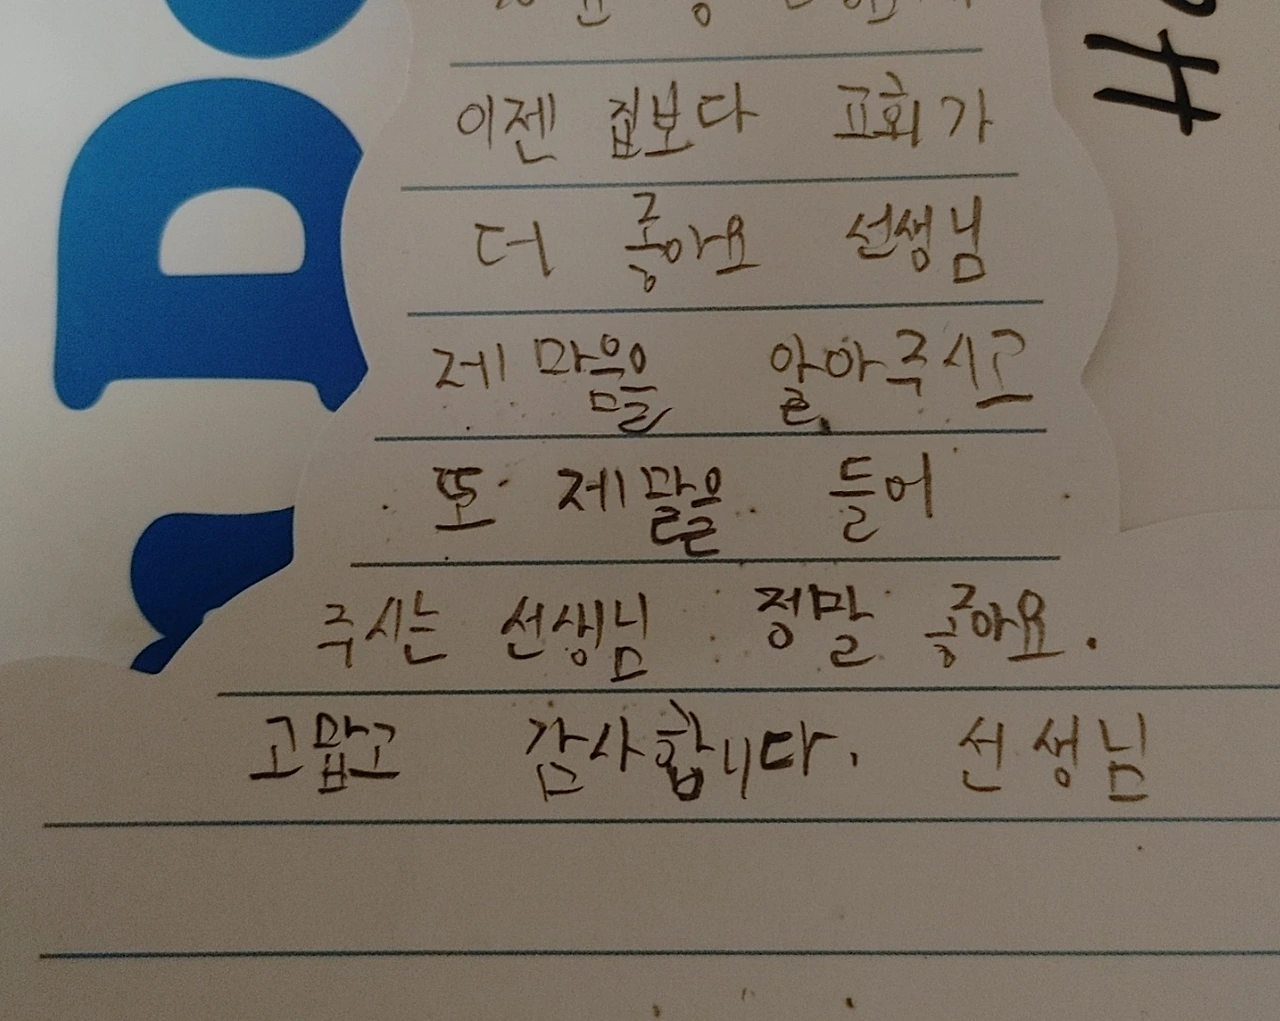 이젠 집보다 교회가
더 좋아요 선생님
제 마음을 알아주시고
또 제 말을 들어
주시는 선생님 정말 좋아요.
고맙고 감사합니다. 선생님